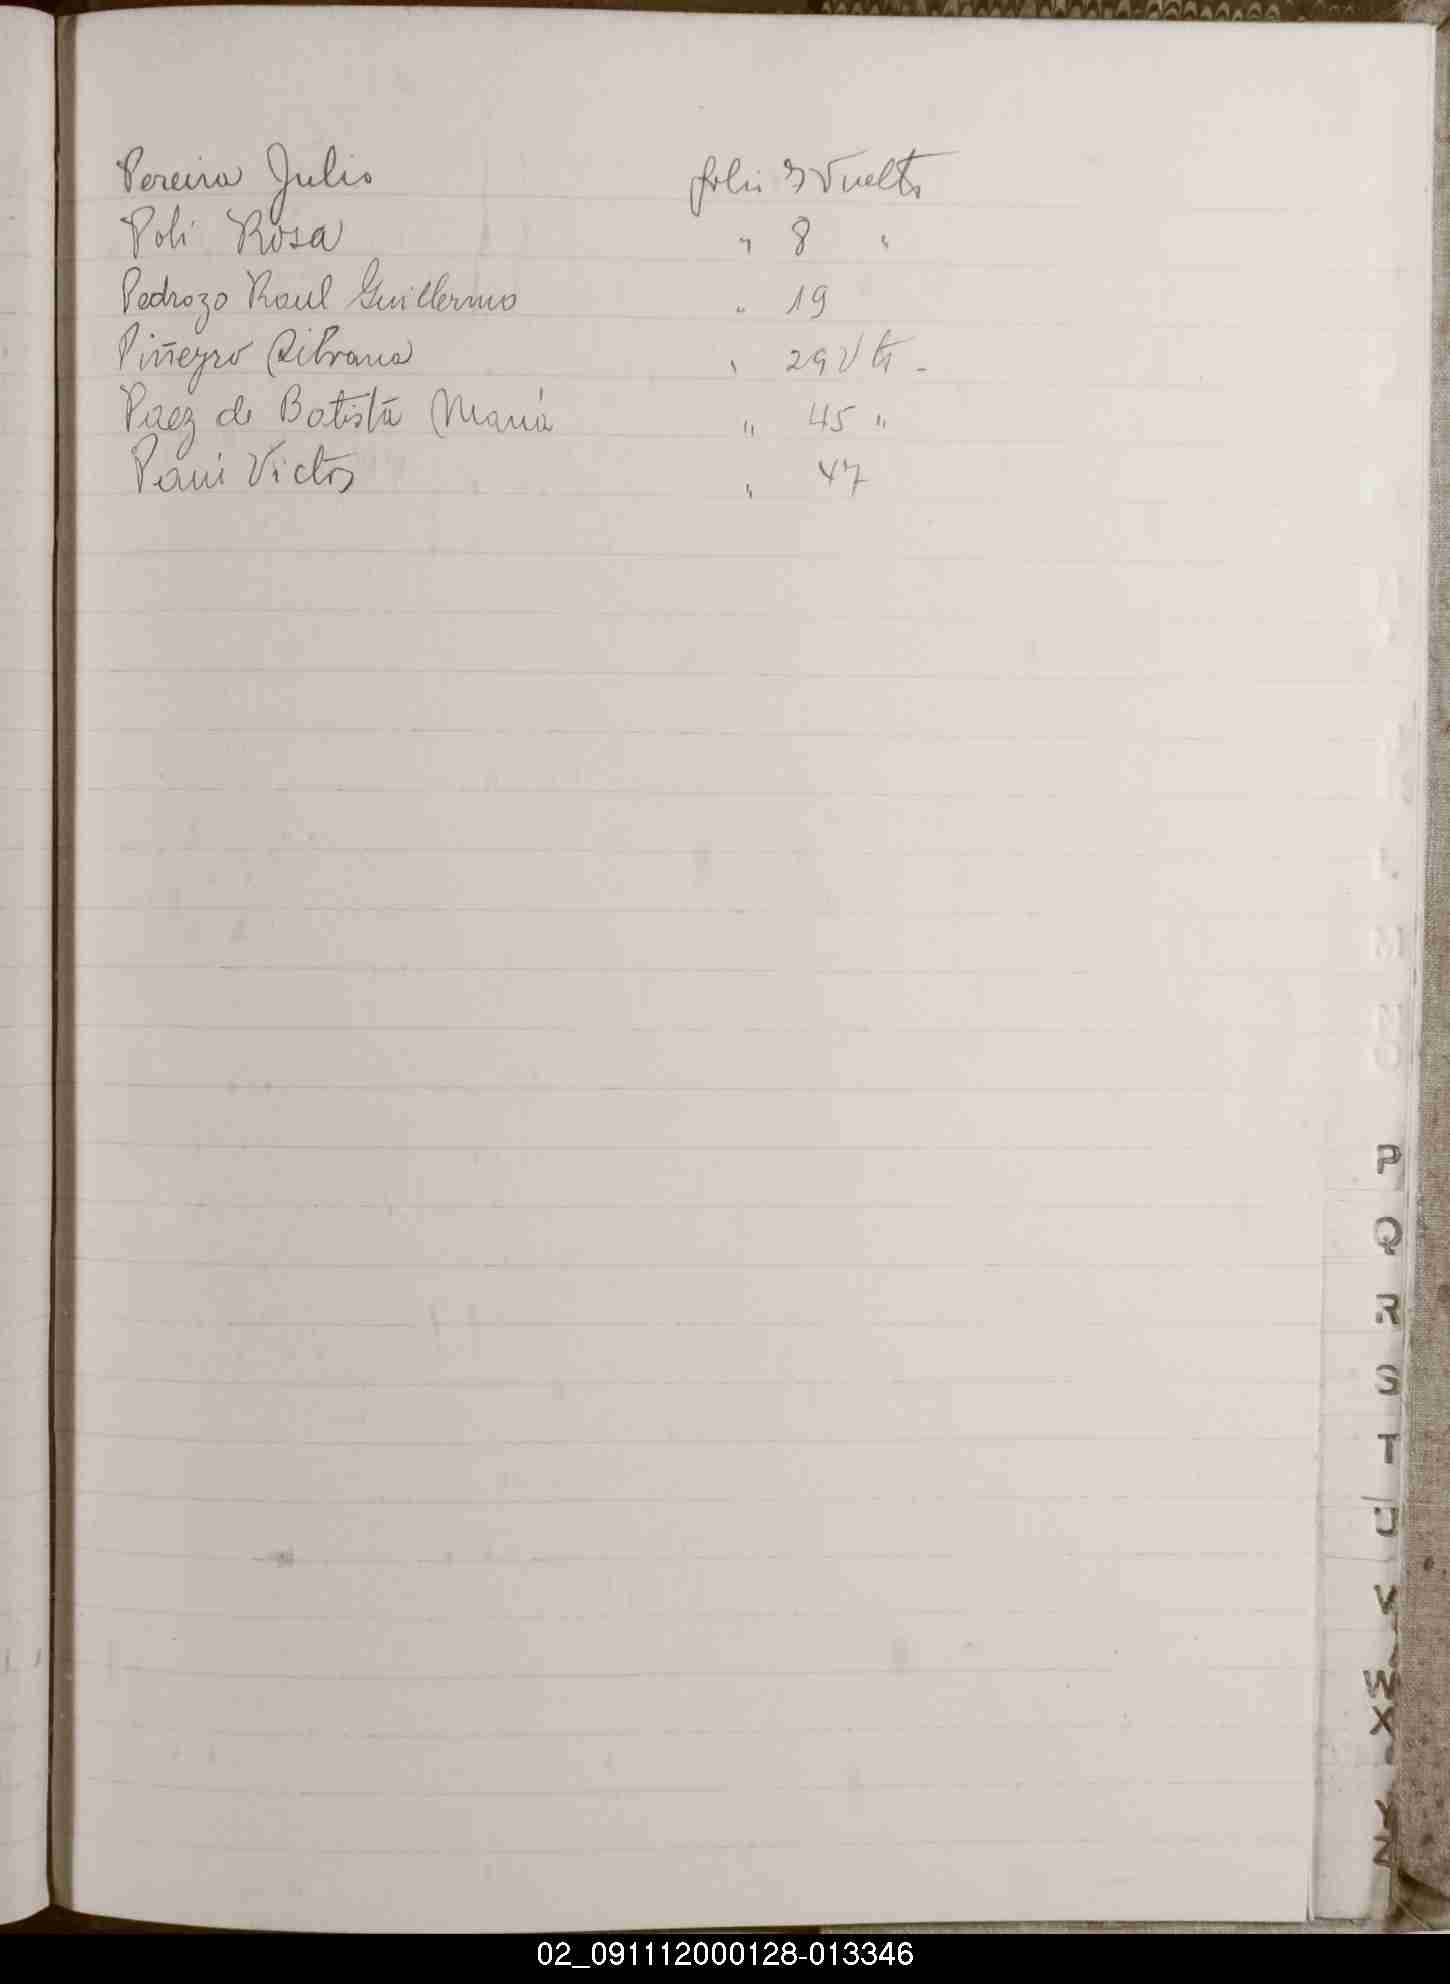 Pereira Julio folio 7 Vuelto
Poli Rosa " 8 "
Pedrozo Raul Guillermo " 19
Piñeyro Silvana " 29 Vto -
Paez de Batista María " 45 "
Victor " 47
P
Q
R
S
T
U
V
W
X
Y
Z
02_091112000128-013346